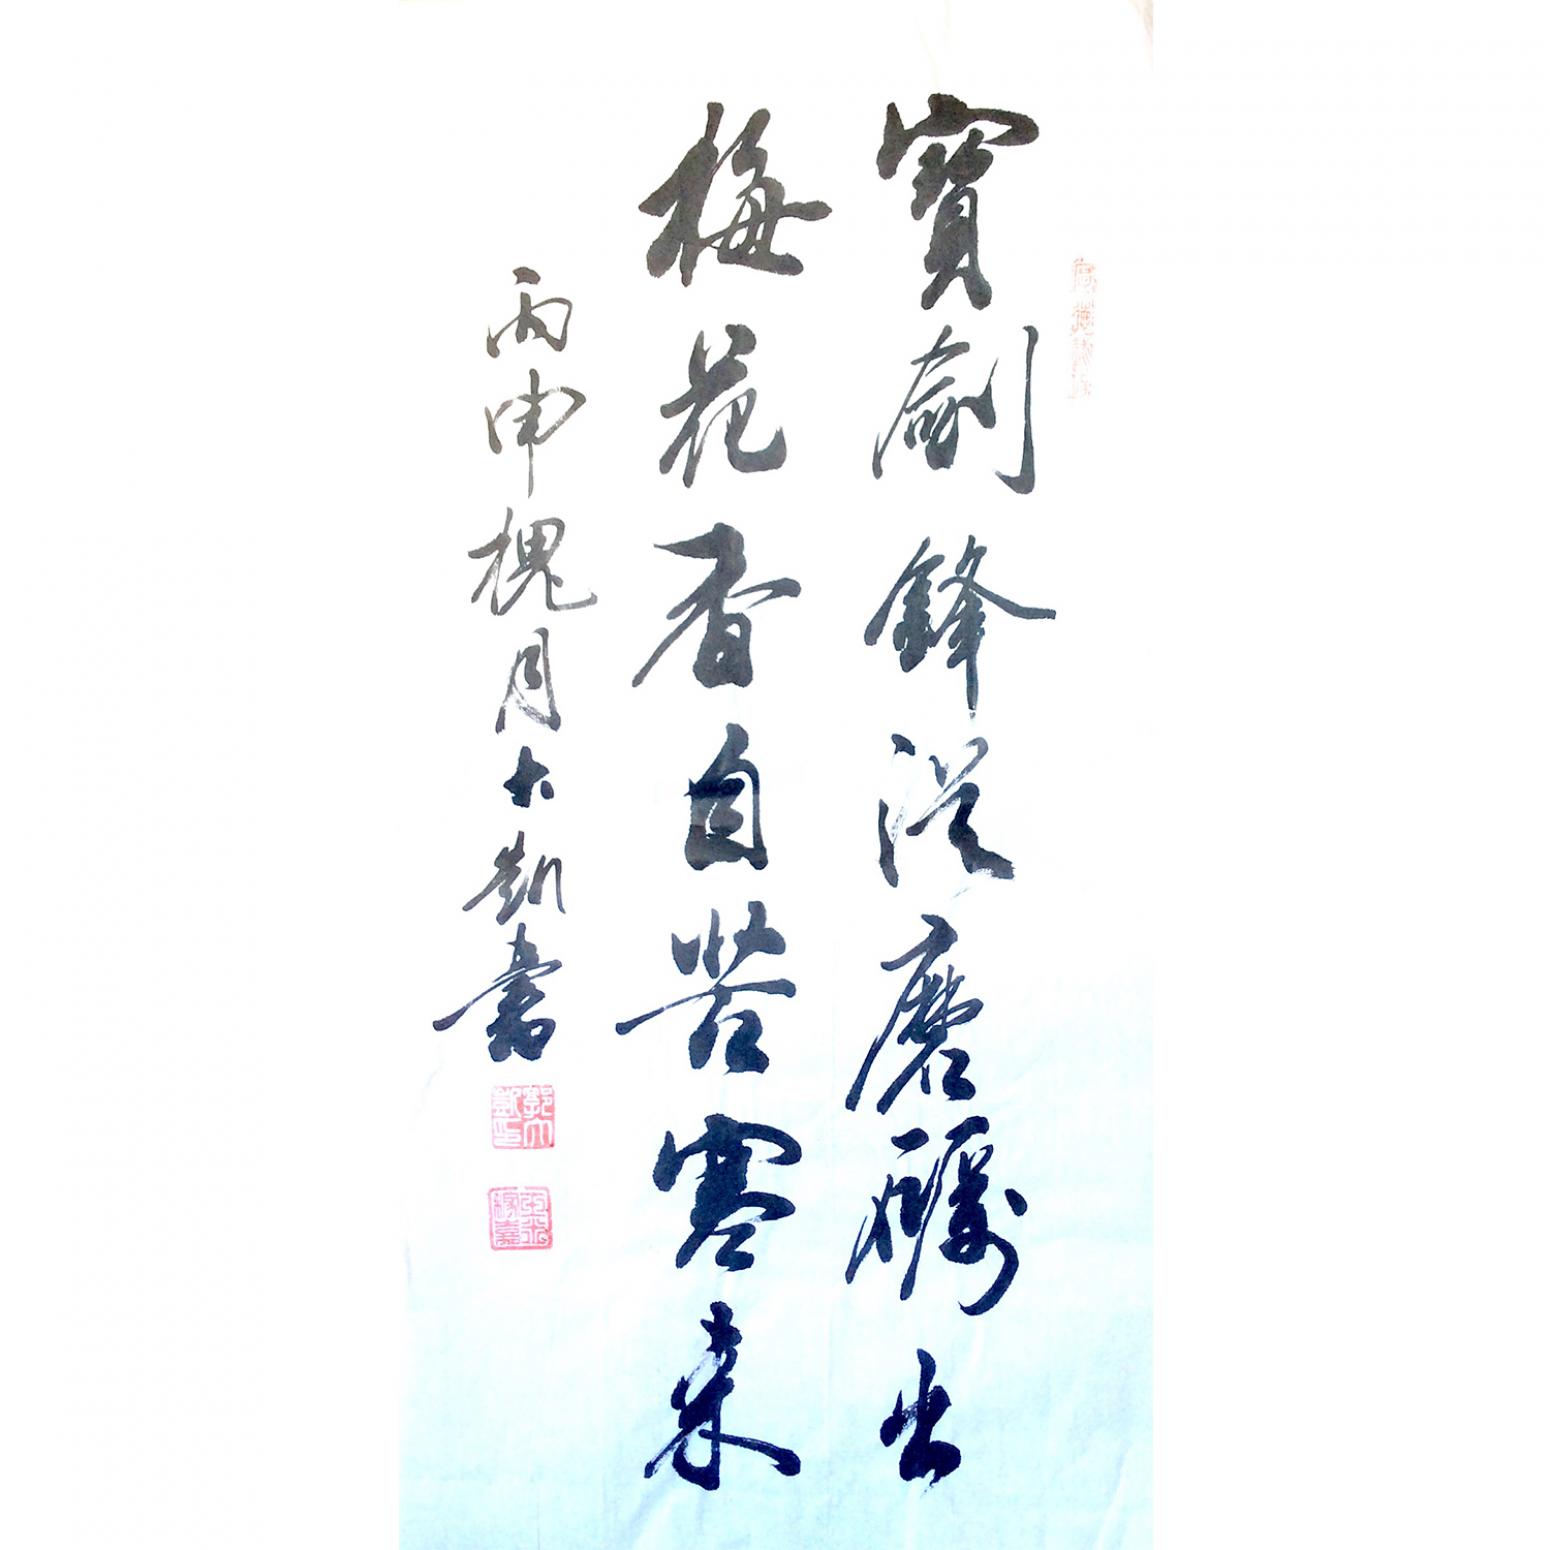 寶劍鋒從磨礪出
梅花香自苦寒來
丙申槐月大凱書
郭大凱印